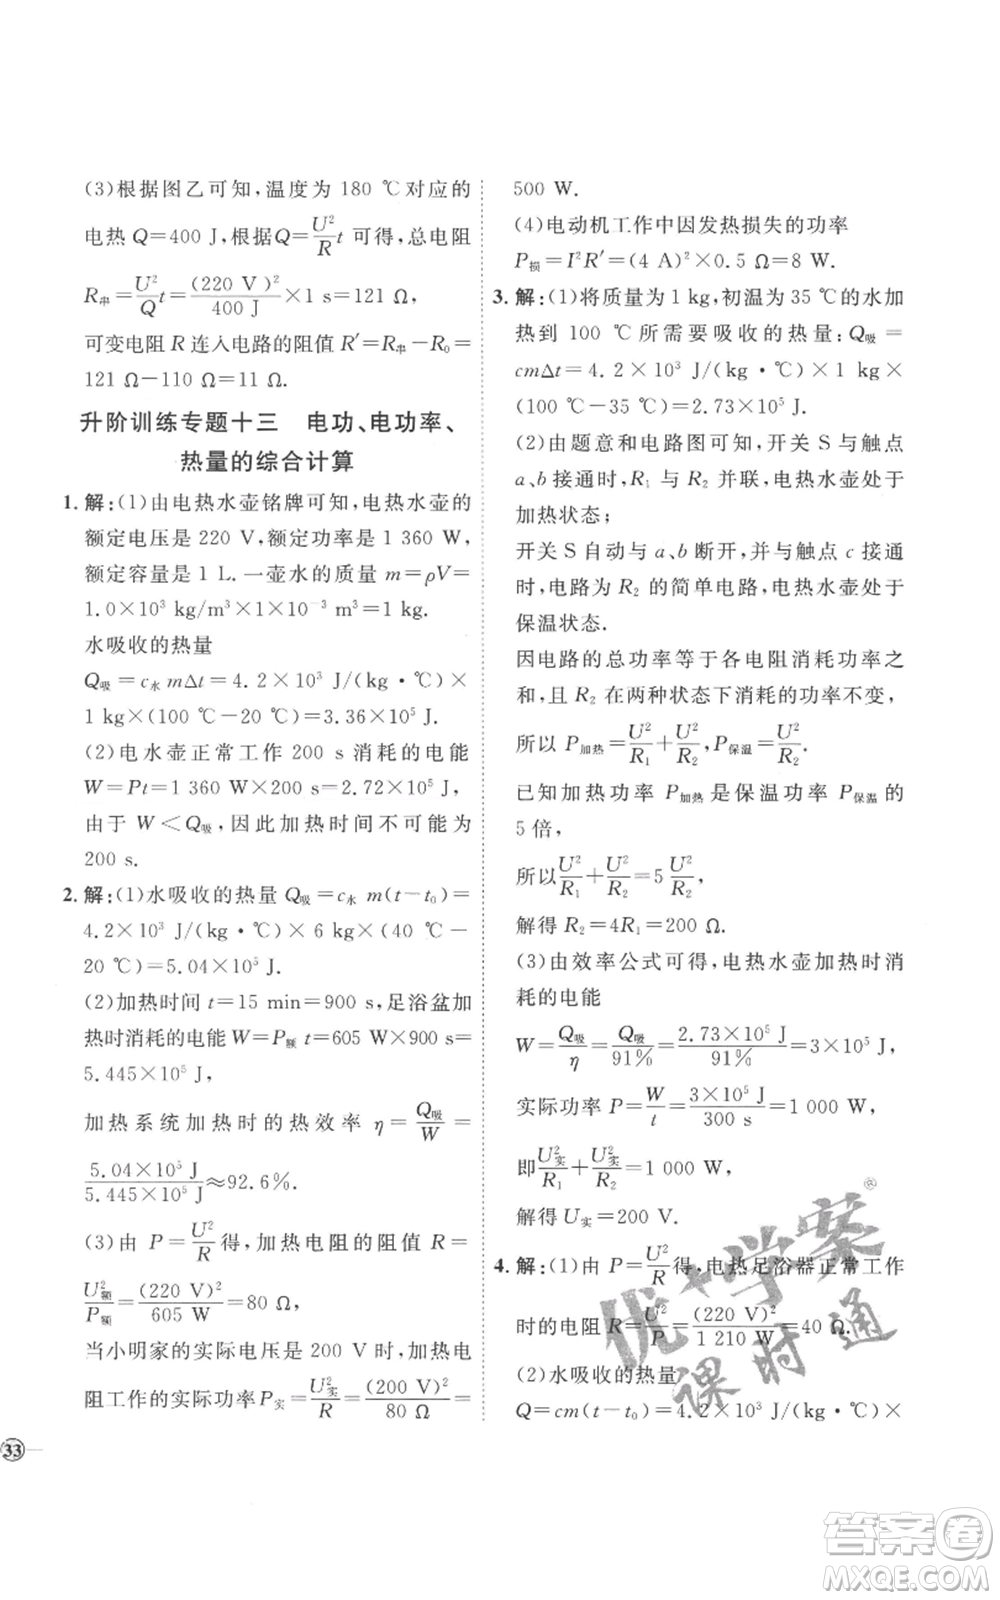 (3)根据图乙可知,温度为 180 ℃对应的
电热 Q=400 J,根据Q=U²/R t 可得,总电阻
R串=U²/Q t=(220 V)²/400 J×1 s=121 Ω,
可变电阻 R 连入电路的阻值 R′=R串-R₀=
121 Ω-110 Ω=11 Ω.
升阶训练专题十三 电功、电功率、
热量的综合计算
1. 解:(1)由电热水壶铭牌可知,电热水壶的
额定电压是 220 V,额定功率为 1 360 W,
额定容量是 1 L.一壶水的质量 m=ρV=
1.0×10³ kg/m³×1×10⁻³ m³=1 kg.
水吸收的热量
Q吸=c水 mΔt=4.2×10³ J/(kg·℃)×
1 kg×(100 ℃-20 ℃)=3.36×10⁵ J.
(2)电水壶正常工作 200 s 消耗的电能
W=Pt=1 360 W×200 s=2.72×10⁵ J,
由于 W<Q吸,因此加热时间不可能为
200 s.
2. 解:(1)水吸收的热量 Q吸=c水 m(t-t₀)=
4.2×10³ J/(kg·℃)×6 kg×(40 ℃-
20 ℃)=5.04×10⁵ J.
(2)加热时间 t=15 min=900 s,足浴盆加
热时消耗的电能 W=P额t=605 W×900 s=
5.445×10⁵ J,
加热系统加热时的热效率 η=Q吸/W=
5.04×10⁵ J/5.445×10⁵ J≈92.6%.
(3)由 P=U²/R得,加热电阻的阻值 R=
U额²/P额=(220 V)²/605 W=80 Ω,
当小明家的实际电压是 200 V 时,加热电
阻工作的实际功率P实=U实²/R=(200 V)²/80 Ω=
33
500 W.
(4)电动机工作中因发热损失的功率
P损=I²R′=(4 A)²×0.5 Ω=8 W.
3. 解:(1)将质量为 1 kg,初温为 35 ℃的水加
热到 100 ℃所需要吸收的热量:Q吸=
cmΔt=4.2×10³ J/(kg·℃)×1 kg×
(100 ℃-35 ℃)=2.73×10⁵ J.
(2)由题意和电路图可知,开关 S 与触点
a、b 接通时,R₁ 与 R₂ 并联,电热水壶处于
加热状态;
开关 S 自动与 a、b 断开,并与触点 c 接通
时,电路为 R₂ 的简单电路,电热水壶处于
保温状态.
因电路的总功率等于各电阻消耗功率之
和,且 R₂ 在两种状态下消耗的功率不变,
所以 P加热=U²/R₁+U²/R₂,P保温=U²/R₂.
已知加热功率 P加热是保温功率 P保温的
5 倍,
所以U²/R₁+U²/R₂=5 U²/R₂,
解得 R₂=4R₁=200 Ω.
(3)由效率公式可得,电热水壶加热时消
耗的电能
W=Q吸/η=Q吸/91%=2.73×10⁵ J/91%=3×10⁵ J,
实际功率 P=W/t=3×10⁵ J/300 s=1 000 W,
即U实²/R₁+U实²/R₂=1 000 W,
解得 U实=200 V.
4. 解:(1)由 P=U²/R得,电热足浴器正常工作
时的电阻 R=U²/P=(220 V)²/1 210 W=40 Ω.
(2)水吸收的热量
Q=cm(t-t₀)=4.2×10³ J/(kg·℃)×
优+学案
课时通
答案卷
MXQE.COM